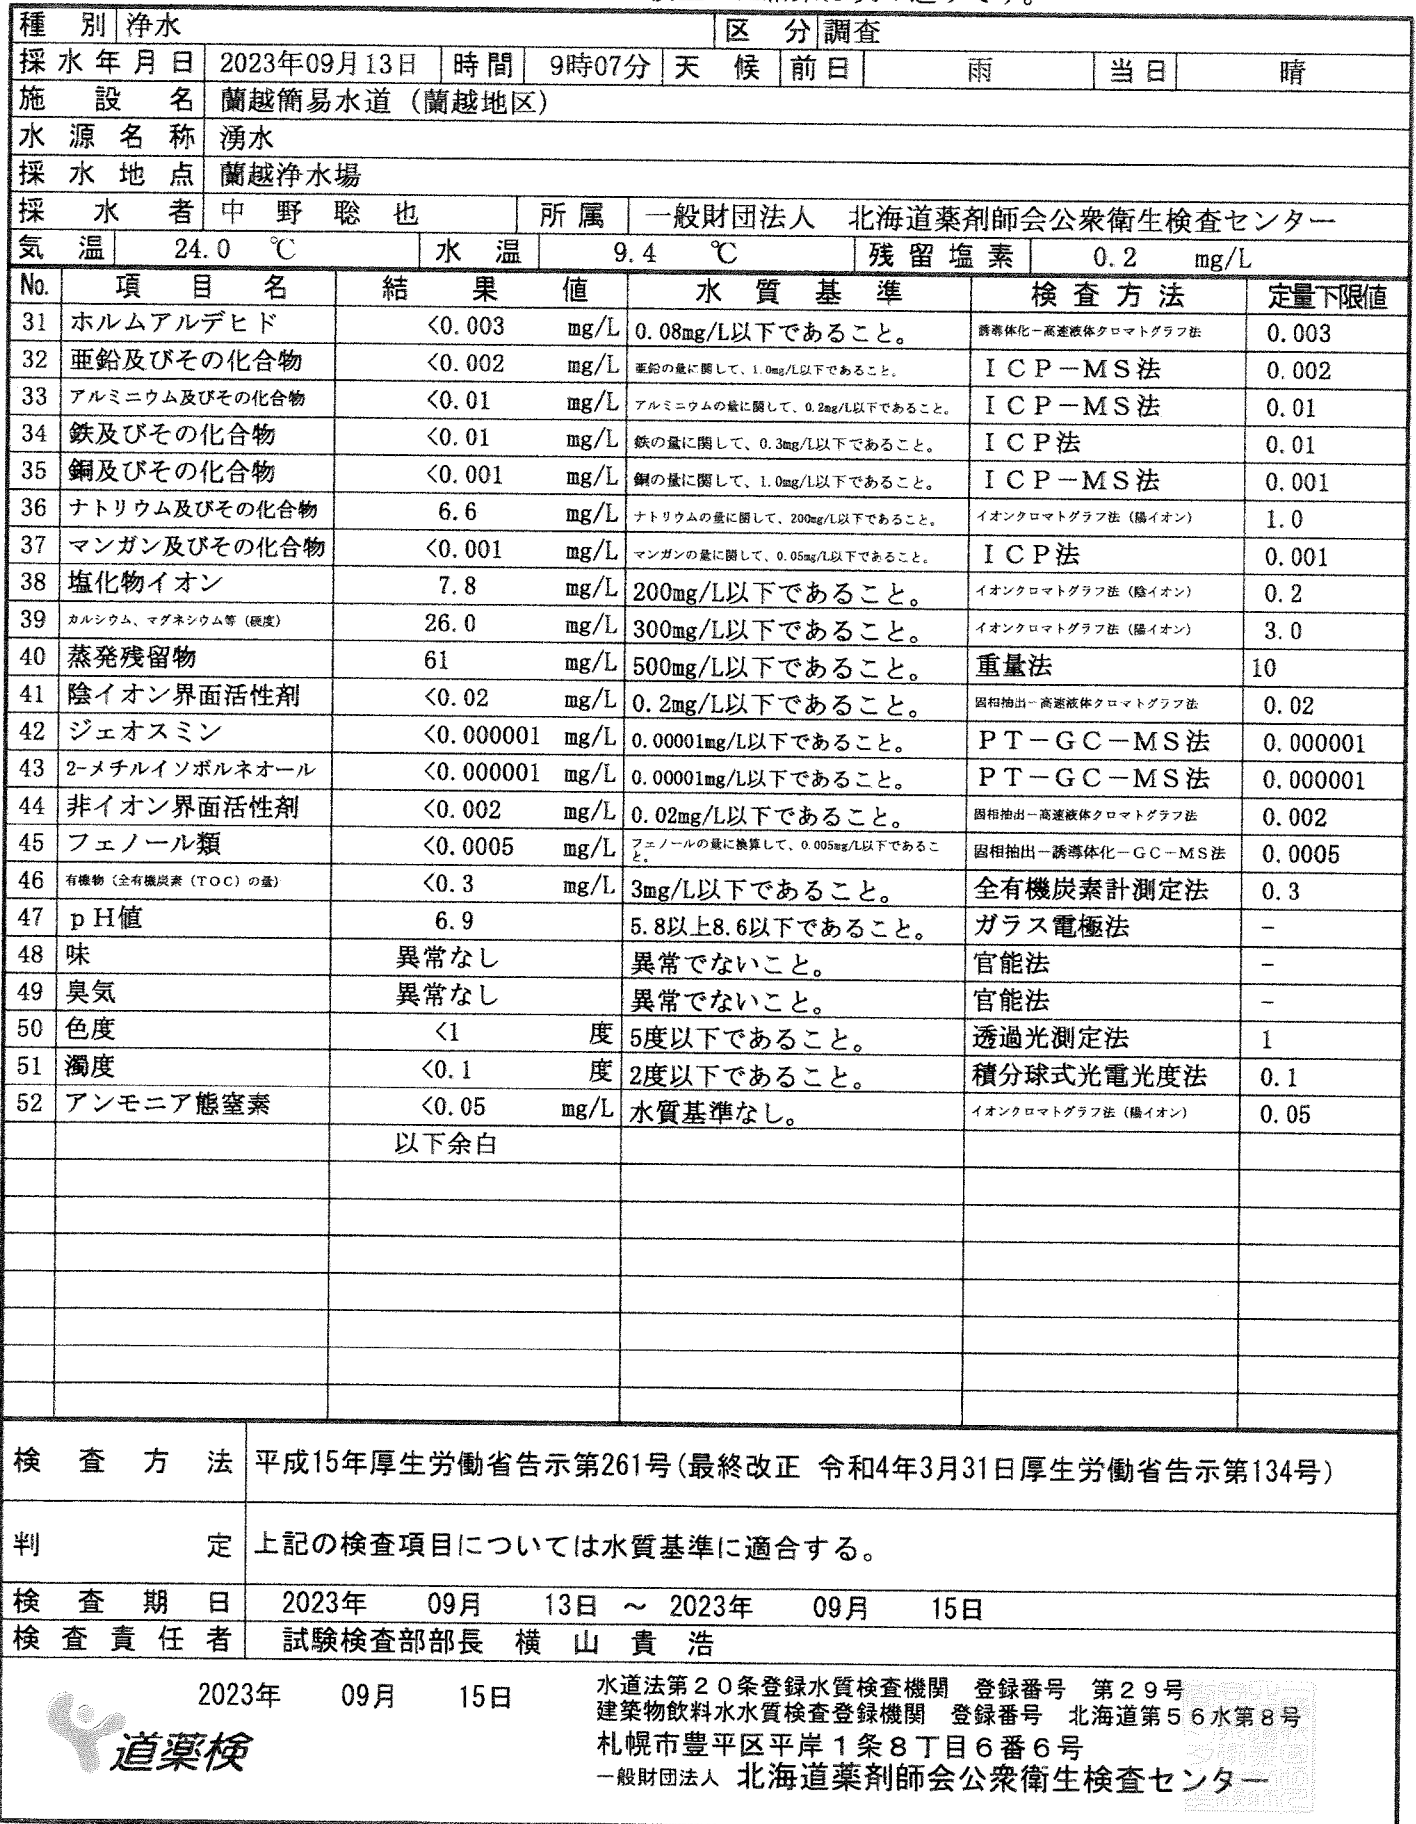 種別 浄水 区分 調査
採水年月日 2023年09月13日 時間 9時07分 天候 前日 雨 当日 晴
施設名 蘭越簡易水道（蘭越地区）
水源名称 湧水
採水地点 蘭越浄水場
採水者 中野聡也 所属 一般財団法人 北海道薬剤師会公衆衛生検査センター
気温 24.0 ℃ 水温 9.4 ℃ 残留塩素 0.2 mg/L
No. 項目名 結果値 水質基準 検査方法 定量下限値
31 ホルムアルデヒド <0.003 mg/L 0.08mg/L以下であること。 誘導体化－高速液体クロマトグラフ法 0.003
32 亜鉛及びその化合物 <0.002 mg/L 亜鉛の量に関して、1.0mg/L以下であること。 ＩＣＰ－ＭＳ法 0.002
33 アルミニウム及びその化合物 <0.01 mg/L アルミニウムの量に関して、0.2mg/L以下であること。 ＩＣＰ－ＭＳ法 0.01
34 鉄及びその化合物 <0.01 mg/L 鉄の量に関して、0.3mg/L以下であること。 ＩＣＰ法 0.01
35 銅及びその化合物 <0.001 mg/L 銅の量に関して、1.0mg/L以下であること。 ＩＣＰ－ＭＳ法 0.001
36 ナトリウム及びその化合物 6.6 mg/L ナトリウムの量に関して、200mg/L以下であること。 イオンクロマトグラフ法（陽イオン） 1.0
37 マンガン及びその化合物 <0.001 mg/L マンガンの量に関して、0.05mg/L以下であること。 ＩＣＰ法 0.001
38 塩化物イオン 7.8 mg/L 200mg/L以下であること。 イオンクロマトグラフ法（陰イオン） 0.2
39 カルシウム、マグネシウム等（硬度） 26.0 mg/L 300mg/L以下であること。 イオンクロマトグラフ法（陽イオン） 3.0
40 蒸発残留物 61 mg/L 500mg/L以下であること。 重量法 10
41 陰イオン界面活性剤 <0.02 mg/L 0.2mg/L以下であること。 固相抽出－高速液体クロマトグラフ法 0.02
42 ジェオスミン <0.000001 mg/L 0.00001mg/L以下であること。 ＰＴ－ＧＣ－ＭＳ法 0.000001
43 2-メチルイソボルネオール <0.000001 mg/L 0.00001mg/L以下であること。 ＰＴ－ＧＣ－ＭＳ法 0.000001
44 非イオン界面活性剤 <0.002 mg/L 0.02mg/L以下であること。 固相抽出－高速液体クロマトグラフ法 0.002
45 フェノール類 <0.0005 mg/L フェノールの量に換算して、0.005mg/L以下であること。 固相抽出－誘導体化－ＧＣ－ＭＳ法 0.0005
46 有機物（全有機炭素（ＴＯＣ）の量） <0.3 mg/L 3mg/L以下であること。 全有機炭素計測定法 0.3
47 ｐＨ値 6.9 5.8以上8.6以下であること。 ガラス電極法 －
48 味 異常なし 異常でないこと。 官能法 －
49 臭気 異常なし 異常でないこと。 官能法 －
50 色度 <1 度 5度以下であること。 透過光測定法 1
51 濁度 <0.1 度 2度以下であること。 積分球式光電光度法 0.1
52 アンモニア態窒素 <0.05 mg/L 水質基準なし。 イオンクロマトグラフ法（陽イオン） 0.05
以下余白
検査方法 平成15年厚生労働省告示第261号(最終改正 令和4年3月31日厚生労働省告示第134号)
判定 上記の検査項目については水質基準に適合する。
検査期日 2023年 09月 13日 ～ 2023年 09月 15日
検査責任者 試験検査部部長 横山貴浩
2023年 09月 15日
道薬検
水道法第２０条登録水質検査機関 登録番号 第２９号
建築物飲料水水質検査登録機関 登録番号 北海道第５６水第８号
札幌市豊平区平岸１条８丁目６番６号
一般財団法人 北海道薬剤師会公衆衛生検査センター